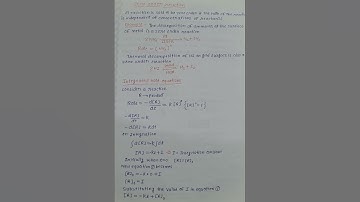 Zero order reaction
A reaction is said to be zero order if the rate of the reaction
is independent of concentrations of reactants
The decomposition of ammonia at the surface
of metal is a zero order reaction
Rate = [NH₃]⁰
Thermal decomposition of HI on gold surface is also a
zero order reaction
Integrated rate equation
Consider a reaction
R → product
Rate = -d[R]/dt = K[R]⁰ {[R]⁰ = 1}
-d[R]/dt = K
-d[R] = Kdt
On integration
[R] = -Kt + I I = Integration constant
Initially when t=0 [R] = [R]₀
Now equation ① becomes
[R]₀ = -K × 0 + I
[R]₀ = I
Substituting the value of I in equation ①
[R] = -Kt + [R]₀